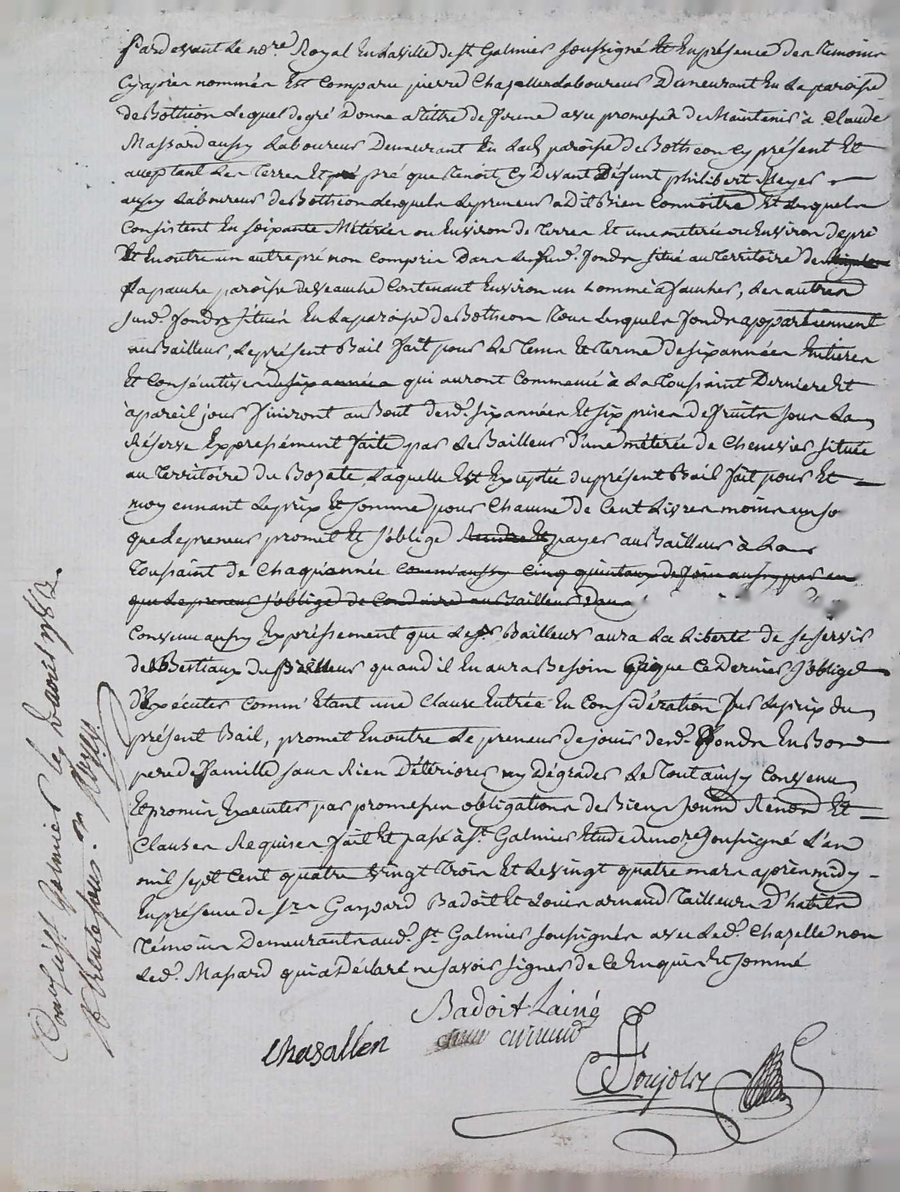 Pardevant le no.re Royal En la ville de St Galmier soussigné Et En présence des temoins
Cy après nommés Est Comparu pierre Chazelles Laboureur Demeurant En La paroisse
de Bothéon Lequel de gré Donne a tittre de ferme avec promesse de Maintenir à Claude
Massard aussy Laboureur Demeurant En lad. paroisse de Botheon Cy présent Et
acceptant Les Terres Et pré que tenoit Cy Devant Défunt philibert Meyer
aussy Laboureur de Bothéon Lesquels Le preneur a dit Bien Connoitre Et Lesquels
Consistent En soixante Métérées ou Environ de Terres Et une meterée ou Environ de pré
Et En outre un autre pré non Compris Dans Les sud. fonds situé au Territoire de
La paroisse de Veauche Contenant Environ un homme à faucher, Les autres
sud. fonds situés En La paroisse de Botheon Tous Lesquels fonds appartiennent
au Bailleur, Le présent Bail fait pour Le Tems Et terme de six années Entieres
Et Consécutives de six années qui auront Commencé à La toussaint Derniere Et
à pareil jour finiront au Bout desd. six années Et six prises de fruits sous La
Réserve Expressément faite par Le Bailleur D'une métérée de Chenevier située
au Territoire du Laquelle Est Exceptée du présent Bail fait pour Et
moyennant Le prix Et somme pour Chacune de Cent Livres moins un so
que Le preneur promet Et s'oblige Rendre Et payer au Bailleur à La
Toussaint de Chaque année Comm'aussy Cinq quintaux de foin aussy par an
que Le preneur s'oblige de Conduire au Bailleur Dans
Convenu aussy Expréssement que Le Bailleur aura La Liberté de se servir
des Bestiaux du quand il En aura Besoin Ce que Ce Dernier s'oblige
D'Exécuter Comm'Etant une Clause Entrée En Considération sur Le prix du
présent Bail, promet En outre Le preneur de jouir desd. fonds En Bon
pere de famille sans Rien Détériorer ny Dégrader Le Tout ainsy Convenu
Et promis Exécuter par promesses obligations de Biens soumis Renonc. Et
Clauses Requises fait Et passé à St Galmier Etude du no.re soussigné L'an
mil sept Cent quatre vingt trois Et Le vingt quatre mars après midy
En présence de Srs Gaspard Badoit Et Louis arnaud Tailleurs D'habits
Témoins Demeurants aud. St Galmier soussignés avec Led. Chazelle non
Led. Massard qui a Déclaré ne savoir signer de Ce Enquis Et sommé
Badoit Lainé
Chazallen
arnaud
Poujolz
Con.lé à St Galmier le avril 1783
R. trente sous